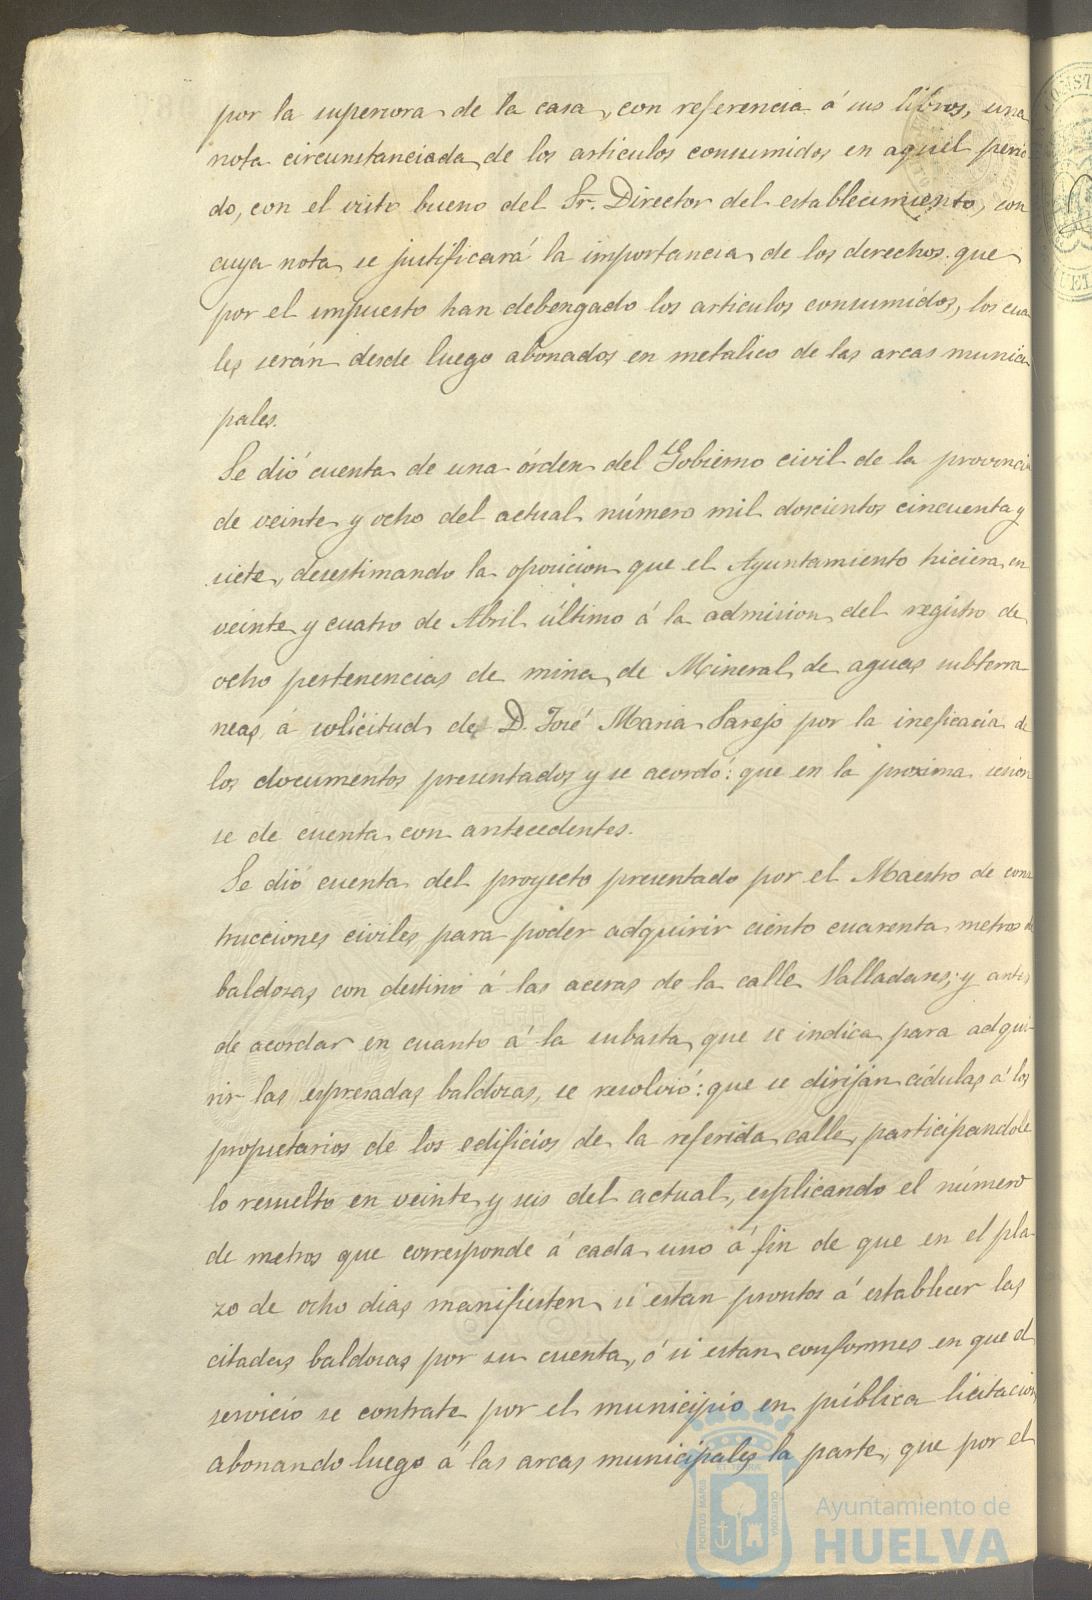 por la superiora de la casa, con referencia á sus libros, una
nota circunstanciada de los articulos consumidos en aquel perio
do, con el visto bueno del Sr. Director del establecimiento, con
cuya nota se justificará la importancia de los derechos que
por el impuesto han debengado los articulos consumidos, los cua
les serán desde luego abonados en metalico de las arcas munici
pales.
Se dió cuenta de una órden del Gobierno civil de la provincia
de veinte y ocho del actual número mil doscientos cincuenta y
siete, desestimando la oposicion que el Ayuntamiento hiciera en
veinte y cuatro de Abril último á la admision del registro de
ocho pertenencias de mina de Mineral de aguas subterra
neas á solicitud de D. José Maria Parejo por la ineficacia de
los documentos presentados y se acordó: que en la proxima sesion
se de cuenta con antecedentes.
Se dió cuenta del proyecto presentado por el Maestro de cons
trucciones civiles para poder adquirir ciento cuarenta metros de
baldosas con destino á las aceras de la calle Valladares; y antes
de acordar en cuanto á la subasta que se indica para adqui-
rir las espresadas baldosas, se resolvió: que se dirijan cédulas á los
propietarios de los edificios de la referida calle participandole
lo resuelto en veinte y seis del actual, esplicando el número
de metros que corresponde á cada uno á fin de que en el pla-
zo de ocho dias manifiesten si estan prontos á establecer las
citadas baldosas por su cuenta, ó si estan conformes en que el
servicio se contrate por el municipio en pública licitacion
abonando luego á las arcas municipales la parte, que por el
PORTUS MARIS
CUSTODIA
Ayuntamiento de
HUELVA